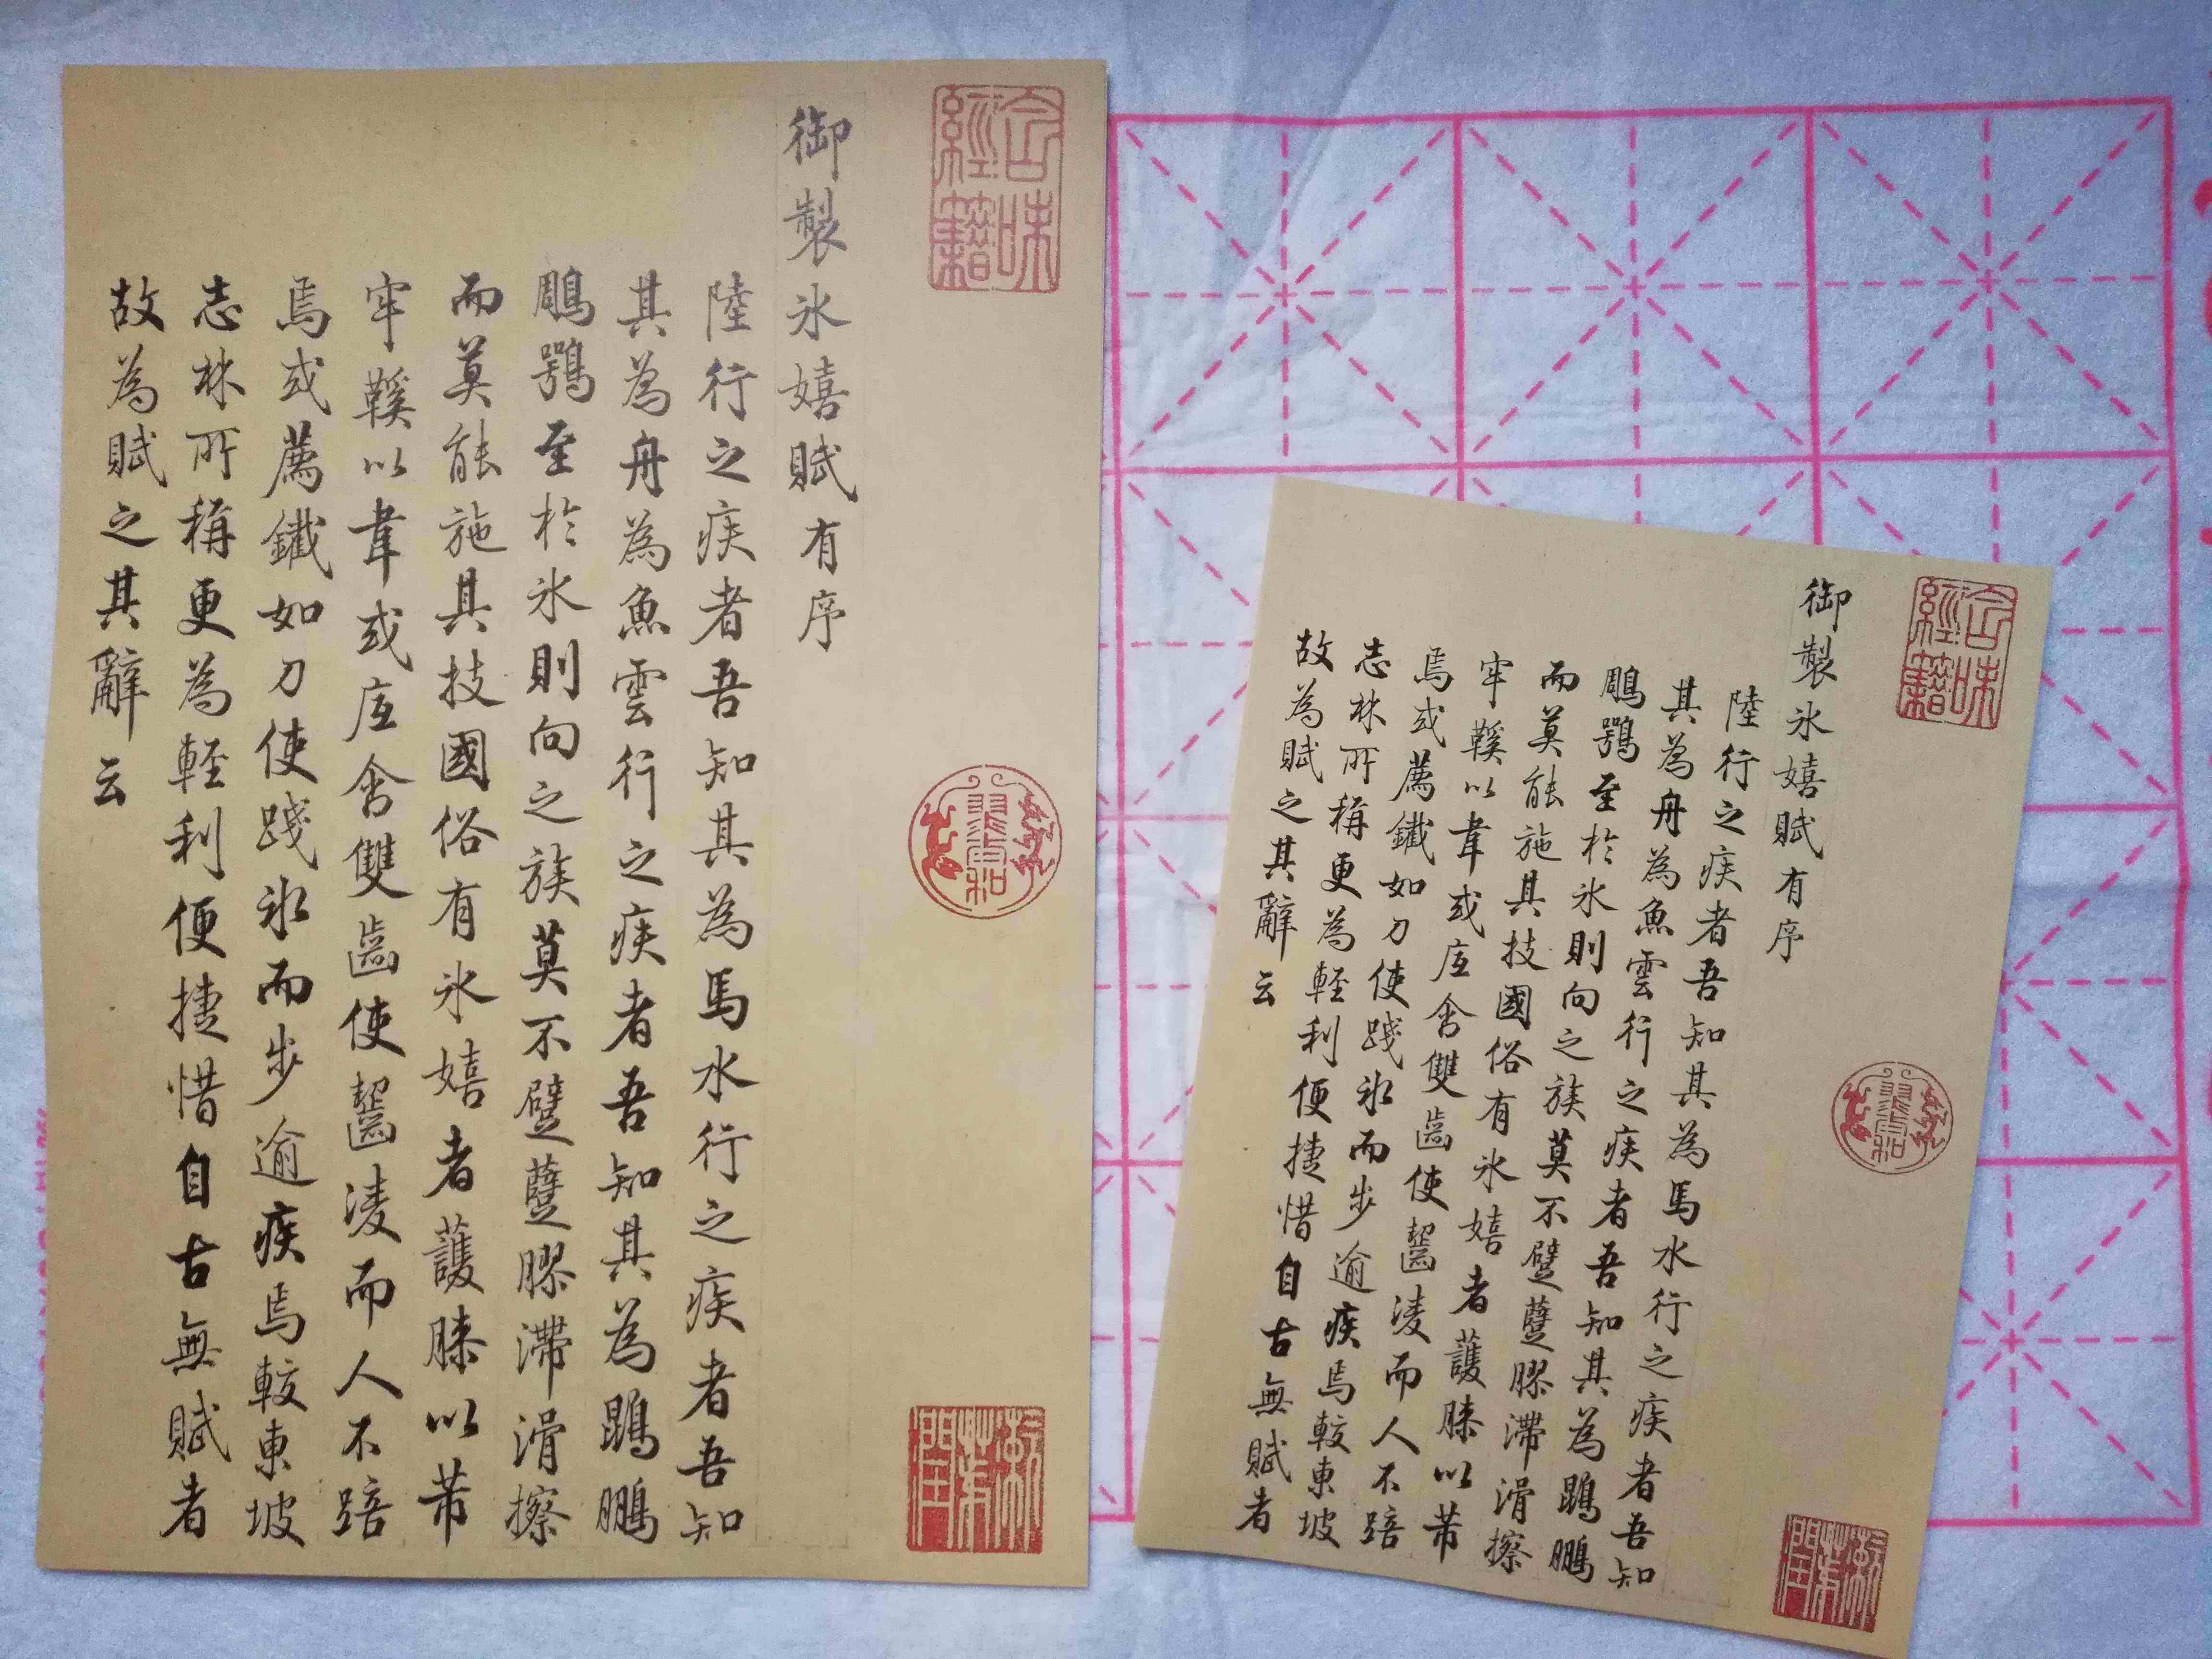 御製冰嬉賦有序
陸行之疾者吾知其為馬水行之疾者吾知
其為舟為魚雲行之疾者吾知其為鵾鵬
鵰鶚至於冰則向之族莫不躄躠膠滯滑擦
而莫能施其技國俗有冰嬉者護膝以芾
牢鞵以韋或底含雙齒使齧凌而人不踣
焉或薦鐵如刀使踐冰而步逾疾焉較東坡
志林所稱更為輕利便捷惜自古無賦者
故為賦之其辭云
含味經籍
御製冰嬉賦有序
陸行之疾者吾知其為馬水行之疾者吾知
其為舟為魚雲行之疾者吾知其為鵾鵬
鵰鶚至於冰則向之族莫不躄躠膠滯滑擦
而莫能施其技國俗有冰嬉者護膝以芾
牢鞵以韋或底含雙齒使齧凌而人不踣
焉或薦鐵如刀使踐冰而步逾疾焉較東坡
志林所稱更為輕利便捷惜自古無賦者
故為賦之其辭云
含味經籍